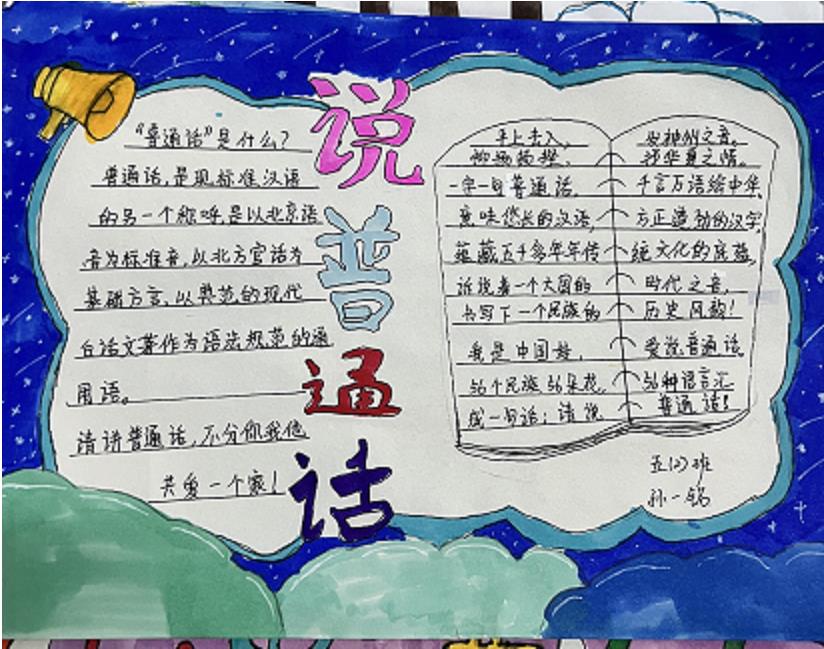 说普通话
"普通话"是什么？
普通话,是现标准汉语
的另一个称呼,是以北京语
音为标准音,以北方官话为
基础方言,以典范的现代
白话文著作为语法规范的通
用语。
请讲普通话,不分你我他
共爱一个家！
平上去入,
抑扬
一字一句普通话,
意味悠长的汉语,
蕴藏五千多年年传
诉说着一个大国的
书写下一个民族的
我是中国娃,
56个民族56朵花,
成一句话：请说
发神州之音。
抒华夏之情。
千言万语绘中华,
方正遒劲的汉字,
统文化的底蕴,
时代之音,
历史风韵！
爱说普通话,
56种语言汇
普通话！
五(2)班
孙一铭